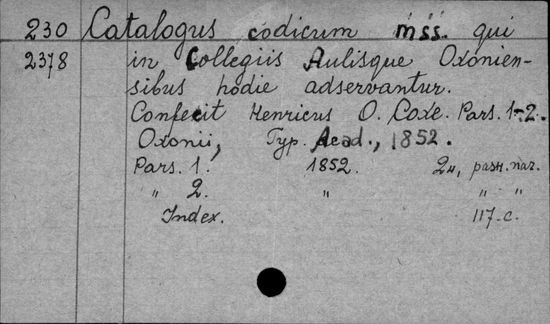 230 Catalogus codicum mss. qui
2378 in Collegiis Aulisque Oxonien-
sibus hodie adservantur.
Confecit Henricus O. Coxe. Pars. 1-2.
Oxonii, Typ. Acad., 1852.
Pars. 1. 1852. 24,
" 2. " " "
Index. 117 c.